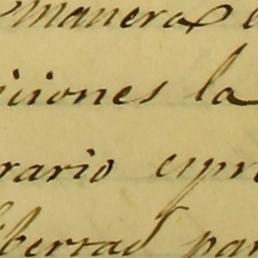 manera
iciones la
rario
libertad par